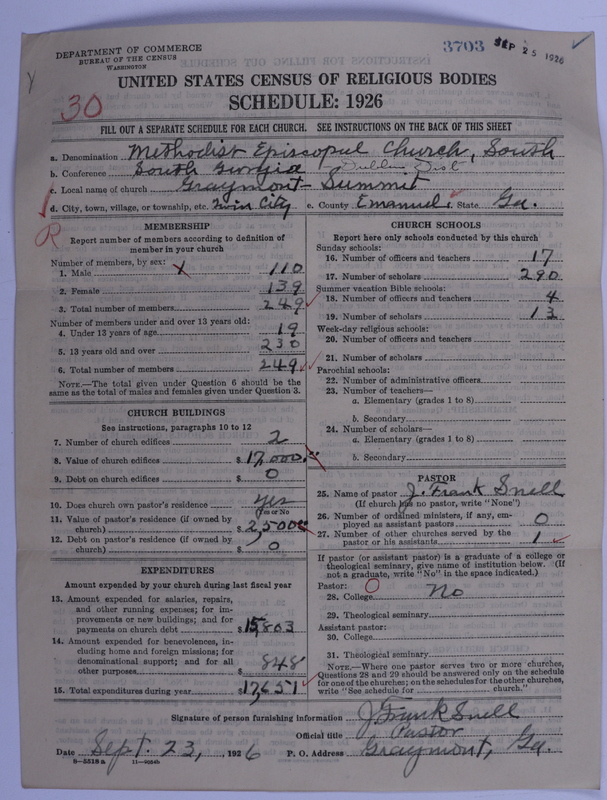 DEPARTMENT OF COMMERCE
BUREAU OF THE CENSUS
WASHINGTON
3703
SEP 25 1926
UNITED STATES CENSUS OF RELIGIOUS BODIES
SCHEDULE: 1926
30
FILL OUT A SEPARATE SCHEDULE FOR EACH CHURCH. SEE INSTRUCTIONS ON THE BACK OF THIS SHEET
a. Denomination Methodist Episcopal Church, South
b. Conference South Georgia Dublin Dist
c. Local name of church Graymont-Summit
d. City, town, village, or township, etc. Twin City e. County Emanuel f. State Ga.
R
MEMBERSHIP
Report number of members according to definition of
member in your church
Number of members, by sex:
1. Male 110
2. Female 139
3. Total number of members 249
Number of members under and over 13 years old:
4. Under 13 years of age 19
5. 13 years old and over 230
6. Total number of members 249
NOTE.—The total given under Question 6 should be
same as the total of males and females given under Question 3.
CHURCH BUILDINGS
See instructions, paragraphs 10 to 12
7. Number of church edifices 2
8. Value of church edifices $ 17,000.00
9. Debt on church edifices $ 0
10. Does church own pastor's residence yes
Yes or No
11. Value of pastor's residence (if owned by
church) $ 2,500.00
12. Debt on pastor's residence (if owned by
church) $ 0
EXPENDITURES
Amount expended by your church during last fiscal year
13. Amount expended for salaries, repairs,
and other running expenses; for im-
provements or new buildings; and for
payments on church debt $ 15,803
14. Amount expended for benevolences, in-
cluding home and foreign missions; for
denominational support; and for all
other purposes $ 848
15. Total expenditures during year $ 17,651
CHURCH SCHOOLS
Report here only schools conducted by this church
Sunday schools:
16. Number of officers and teachers 17
17. Number of scholars 290
Summer vacation Bible schools:
18. Number of officers and teachers 4
19. Number of scholars 13
Week-day religious schools:
20. Number of officers and teachers
21. Number of scholars
Parochial schools:
22. Number of administrative officers
23. Number of teachers—
a. Elementary (grades 1 to 8)
b. Secondary
24. Number of scholars—
a. Elementary (grades 1 to 8)
b. Secondary
PASTOR
25. Name of pastor J. Frank Snell
(If church has no pastor, write "None")
26. Number of ordained ministers, if any, em-
ployed as assistant pastors 0
27. Number of other churches served by the
pastor or his assistants 1
If pastor (or assistant pastor) is a graduate of a college or
theological seminary, give name of institution below. (If
not a graduate, write "No" in the space indicated.)
Pastor:
28. College No
29. Theological seminary
Assistant pastor:
30. College
31. Theological seminary
NOTE.—Where one pastor serves two or more churches,
Questions 28 and 29 should be answered only on the schedule
for one of the churches; on the schedules for the other churches,
write "See schedule for church."
Signature of person furnishing information J Frank Snell
Official title Pastor
Date Sept. 23, 1926 P. O. Address Graymont, Ga.
8—5518 a